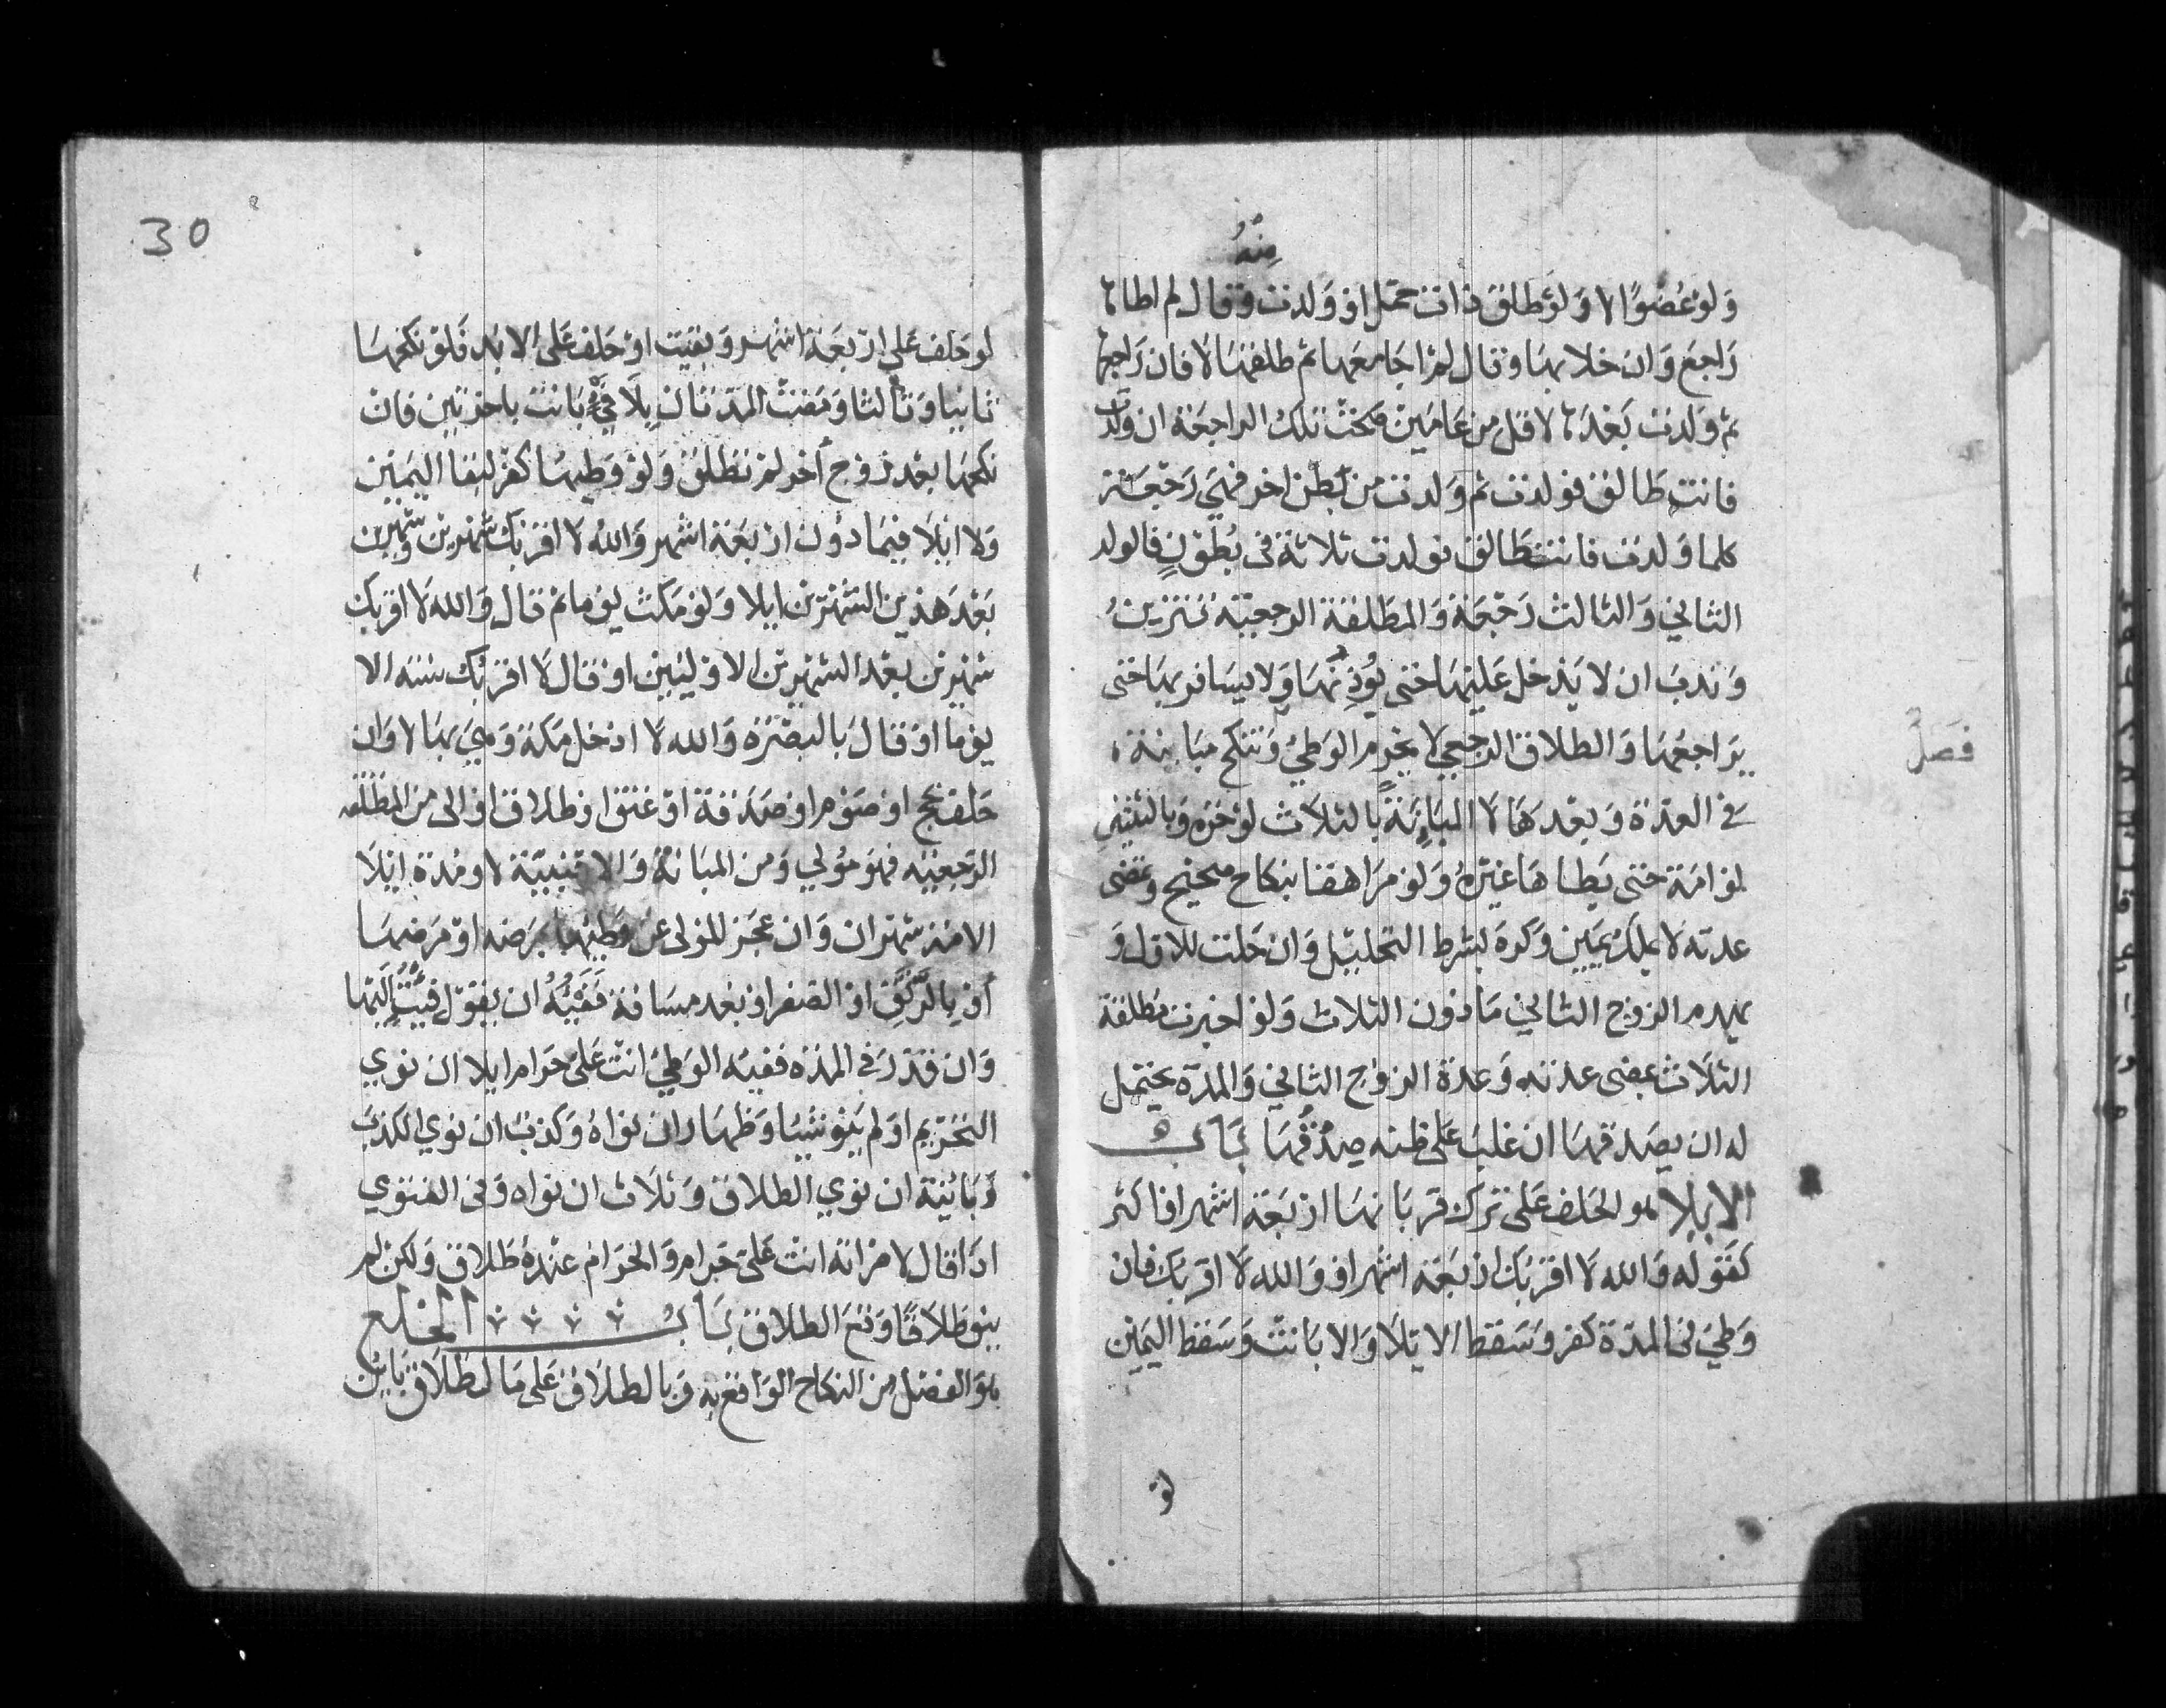 منه
ولو عضوا لا ولو طلق ذات حمل او ولدت وقال لم اطاها
راجع وان خلا بها وقال لم اجامعها ثم طلقها لا فان راجعها
ثم ولدت بعدها لاقل من عامين صحت تلك الراجعة ان ولدت
فانت طالق فولدت ثم ولدت من بطن اخر فهي رجعة
كلما ولدت فانت طالق فولدت ثلاثة في بطون فالولد
الثاني والثالث رجعة والمطلقة الرجعية تتزين
وندب ان لا يدخل عليها حتى يوذنها ولا يسافر بها حتى
يراجعها والطلاق الرجعي لا يحرم الوطي وتنكح مباينة
فصل
في العدة وبعدها لا المباينة بالثلاث لو حرة وبالثنتين
لو امة حتى يطاها غيره ولو مراهقا بنكاح صحيح وتمضى
عدته لا بملك يمين وكره بشرط التحليل وان حلت للاول و
يهدم الزوج الثاني ما دون الثلاث ولو اخبرت مطلقة
الثلاث بمضى عدته وعدة الزوج الثاني والمدة يحتمل
له ان يصدقها ان غلب على ظنه صدقها باب
الايلا هو الحلف على ترك قربانها اربعة اشهر او اكثر
كقوله والله لا اقربك اربعة اشهر او والله لا اقربك فان
وطي في المدة كفر وسقط الايلا والا بانت وسقط اليمين
لو
30
لو حلف على اربعة اشهر وبقيت او حلف على الابد فلو نكحها
ثانيا وثالثا ومضت المدتان بلا في بانت باخريين فان
نكحها بعد زوج اخر لم تطلق ولو وطيها كفر لبقا اليمين
ولا ايلا فيما دون اربعة اشهر والله لا اقربك شهرين وشهرين
بعد هذين الشهرين ايلا ولو مكث يوما ثم قال والله لا اقربك
شهرين بعد الشهرين الاوليين او قال لا اقربك سنة الا
يوما او قال بالبصرة والله لا ادخل مكة وهي بها لا وان
حلف بحج او صوم او صدقة او عتق او طلاق او الى من المطلقة
الرجعية فهو مولي ومن المبانة والاجنبية لا ومدة ايلا
الامة شهران وان عجز المولى عن وطيها بمرضه او مرضها
او بالرتق او الصغر او بعد مسافة ففيئه ان يقول فيت اليها
وان قدر في المدة ففيه الوطي انت على حرام ايلا ان نوي
التحريم او لم ينو شيا وظهار ان نواه وكذب ان نوي الكذب
وباينة ان نوي الطلاق وثلاث ان نواه وفي الفتوي
اذا قال لامراته انت على حرام والحرام عنده طلاق ولكن لم
ينو طلاقا وقع الطلاق باب الخلع
هو الفصل من النكاح الواقع به وبالطلاق على مال طلاق باين